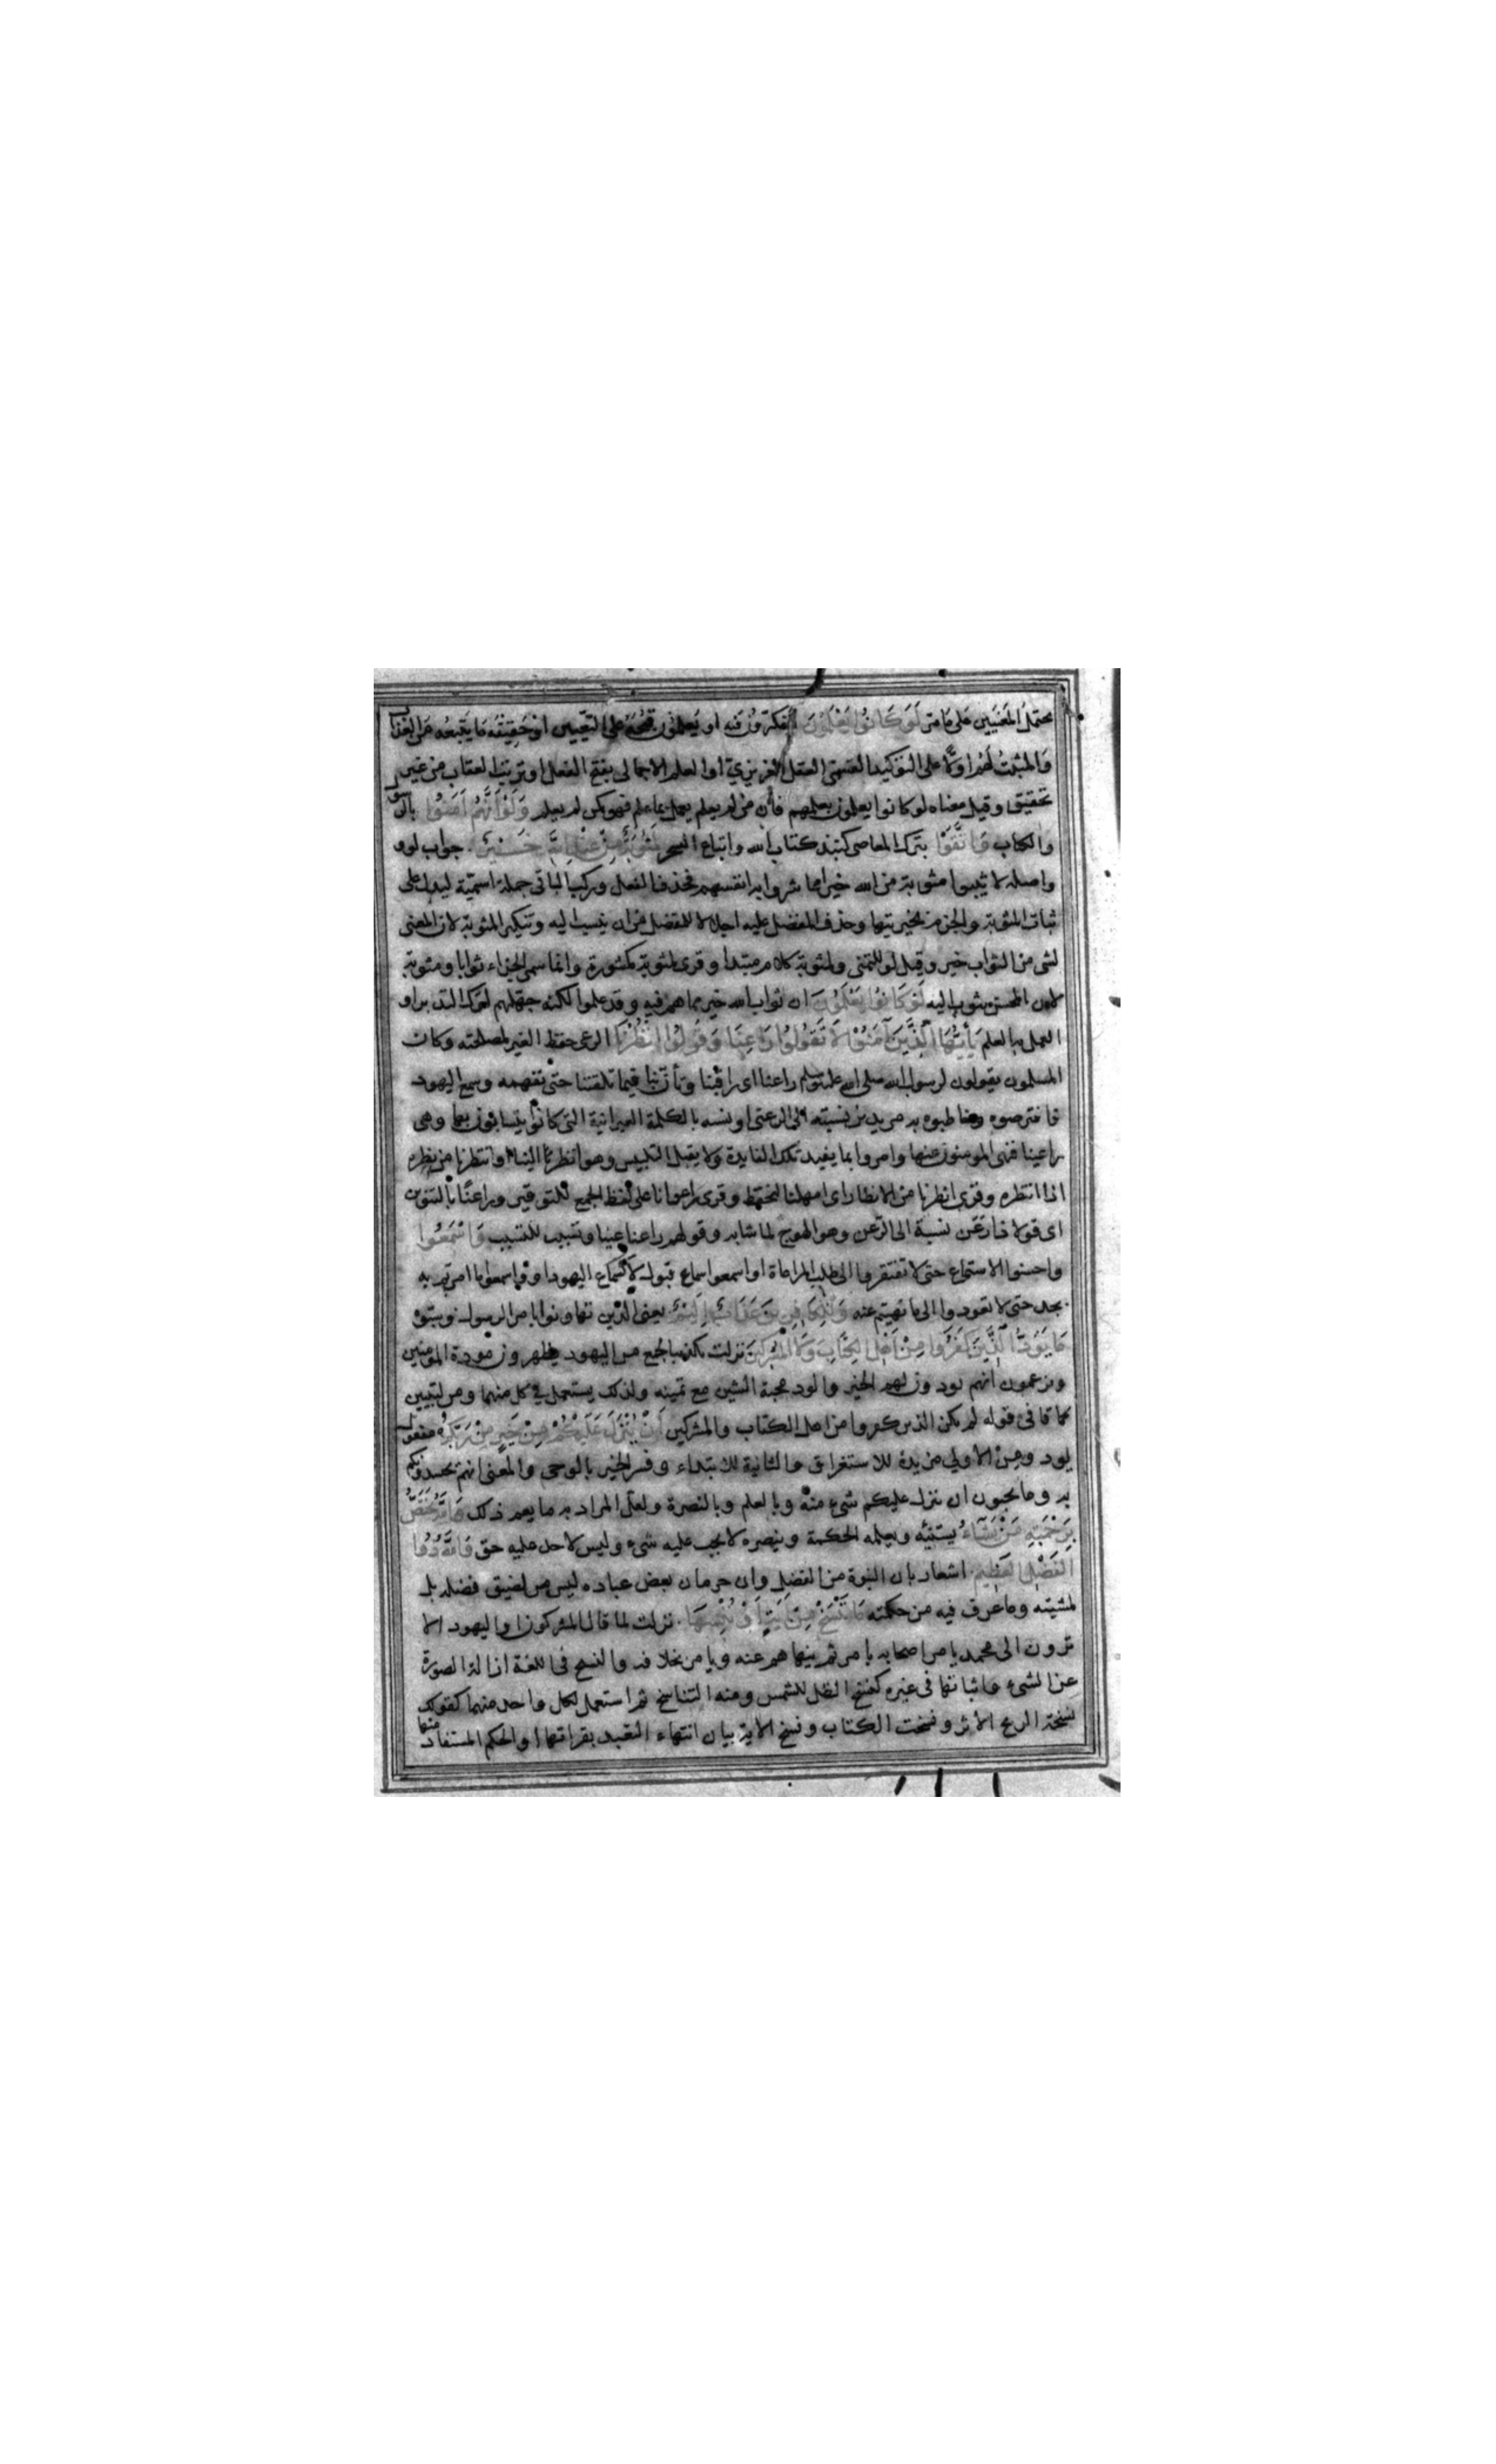 يحتمل المعنيين على ما مر لَوْ كَانُوا يَعْلَمُونَ يتفكرون فيه او يعلمون قبحه على التعيين او حقيقة ما يتبعه من العذاب
والمثبت لهم اولا على التوكيد القسمى العقل الغريزي او العلم الاجمالى بقبح الفعل او ترتب العقاب من غير
تحقيق وقيل معناه لو كانوا يعلمون بعلمهم فان من لم يعلم يعمل بما علم فهو كمن لم يعلم وَلَوْ أَنَّهُمْ آمَنُوا بالرسول
والكتاب وَاتَّقَوْا بترك المعاصى كنبذ كتاب الله واتباع السحر لَمَثُوبَةٌ مِنْ عِنْدِ اللَّهِ خَيْرٌ جواب لو و
واصله لاثيبوا مثوبة من الله خيرا مما شروا به انفسهم فحذف الفعل وركب الباقى جملة اسمية ليدل على
ثبات المثوبة والجزم بخيريتها وحذف المفضل عليه اجلالا للمفضل من ان ينسب اليه وتنكير المثوبة لان المعنى
لشى من الثواب خير وقيل لو للتمنى ولمثوبة كلام مبتدا وقرى لمثوبة كمشورة وانما سمى الجزاء ثوابا ومثوبة
لان المحسن يثوب اليه لَوْ كَانُوا يَعْلَمُونَ ان ثواب الله خير مما هم فيه وقد علموا لكنه جهلهم لترك التدبر او
العمل بالعلم يَا أَيُّهَا الَّذِينَ آمَنُوا لَا تَقُولُوا رَاعِنَا وَقُولُوا انْظُرْنَا الرعى حفظ الغير لمصلحته وكان
المسلمون يقولون لرسول الله صلى الله عليه وسلم راعنا اى راقبنا وتأن بنا فيما تلقننا حتى نفهمه وسمع اليهود
فافترصوه وخاطبوه به مريدين نسبته الى الرعن او نسبه بالكلمة العبرانية التى كانوا يتسابون بها وهى
راعينا فنهى المومنون عنها وامروا بما يفيد تلك الفايدة ولا يقبل التلبيس وهو انظرنا الينا او انتظرنا من نظره
اذا انتظره وقرى انظرنا من الانظار اى امهلنا لنحفظ وقرى راعونا على لفظ الجمع للتوقير وراعنا بالتنوين
اى قولا ذا رعن نسبة الى الرعن وهو الهوج لما شابه وقولهم راعنا عينا وتسبب للسبب وَاسْمَعُوا
واحسنوا الاستماع حتى لا تفتقروا الى طلب المراعاة او اسمعوا سماع قبول لا كسماع اليهود او واسمعوا ما امرتم به
بجد حتى لا تعودوا الى ما نهيتم عنه وَلِلْكَافِرِينَ عَذَابٌ أَلِيمٌ يعنى الذين تهاونوا بامر الرسول وسبوه
مَا يَوَدُّ الَّذِينَ كَفَرُوا مِنْ أَهْلِ الْكِتَابِ وَلَا الْمُشْرِكِينَ نزلت تكذيبا لجمع من اليهود يظهرون مودة المومنين
ويزعمون انهم يودون لهم الخير والود محبة الشىء مع تمنيه ولذلك يستعمل فى كل منهما ومن للتبيين
كما قا فى قوله لم يكن الذين كفروا من اهل الكتاب والمشركين أَنْ يُنَزَّلَ عَلَيْكُمْ مِنْ خَيْرٍ مِنْ رَبِّكُمْ مفعول
يود ومن الاولى مزيدة للاستغراق والثانية للابتداء وفسر الخير بالوحى والمعنى انهم يحسدونكم
به وما يحبون ان ينزل عليكم شىء منه وبالعلم وبالنصرة ولعل المراد به ما يعم ذلك وَاللَّهُ يَخْتَصُّ
بِرَحْمَتِهِ مَنْ يَشَاءُ يستنبئه ويعلمه الحكمة وينصره لا يجب عليه شىء وليس لاحد عليه حق وَاللَّهُ ذُو
الْفَضْلِ الْعَظِيمِ اشعار بان النبوة من الفضل وان حرمان بعض عباده ليس من لضيق فضله بل
لمشيته وما عرف فيه من حكمته مَا نَنْسَخْ مِنْ آيَةٍ أَوْ نُنْسِهَا نزلت لما قال المشركون او اليهود الا
ترون الى محمد يامر اصحابه بامر ثم ينهاهم عنه ويامر بخلافه والنسخ فى اللغة ازالة الصورة
عن الشىء واثباتها فى غيره كنسخ الظل للشمس ومنه التناسخ ثم استعمل لكل واحد منهما كقولك
نسخت الريح الاثر ونسخت الكتاب ونسخ الاية بيان انتهاء التعبد بقراتها او الحكم المستفاد منها